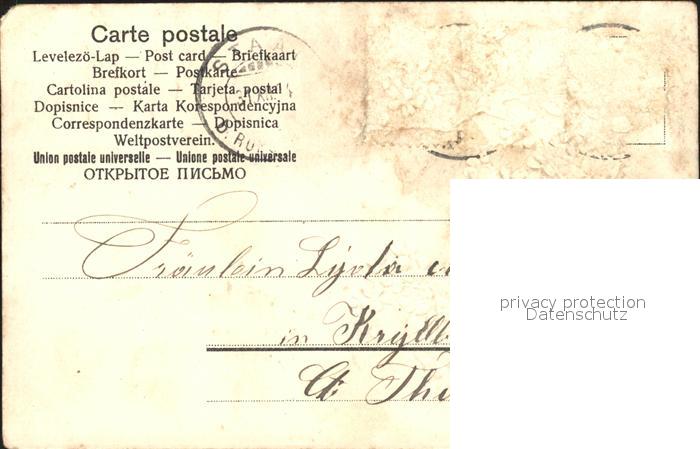 Carte postale
Levelezö-Lap — Post card — Briefkaart
Brefkort — Postkarte
Cartolina postale — Tarjeta postal
Dopisnice — Karta Korespondencyjna
Correspondenzkarte — Dopisnica
Weltpostverein.
Union postale universelle — Unione postale universale
ОТКРЫТОЕ ПИСЬМО
Fräulein
in
privacy protection
Datenschutz